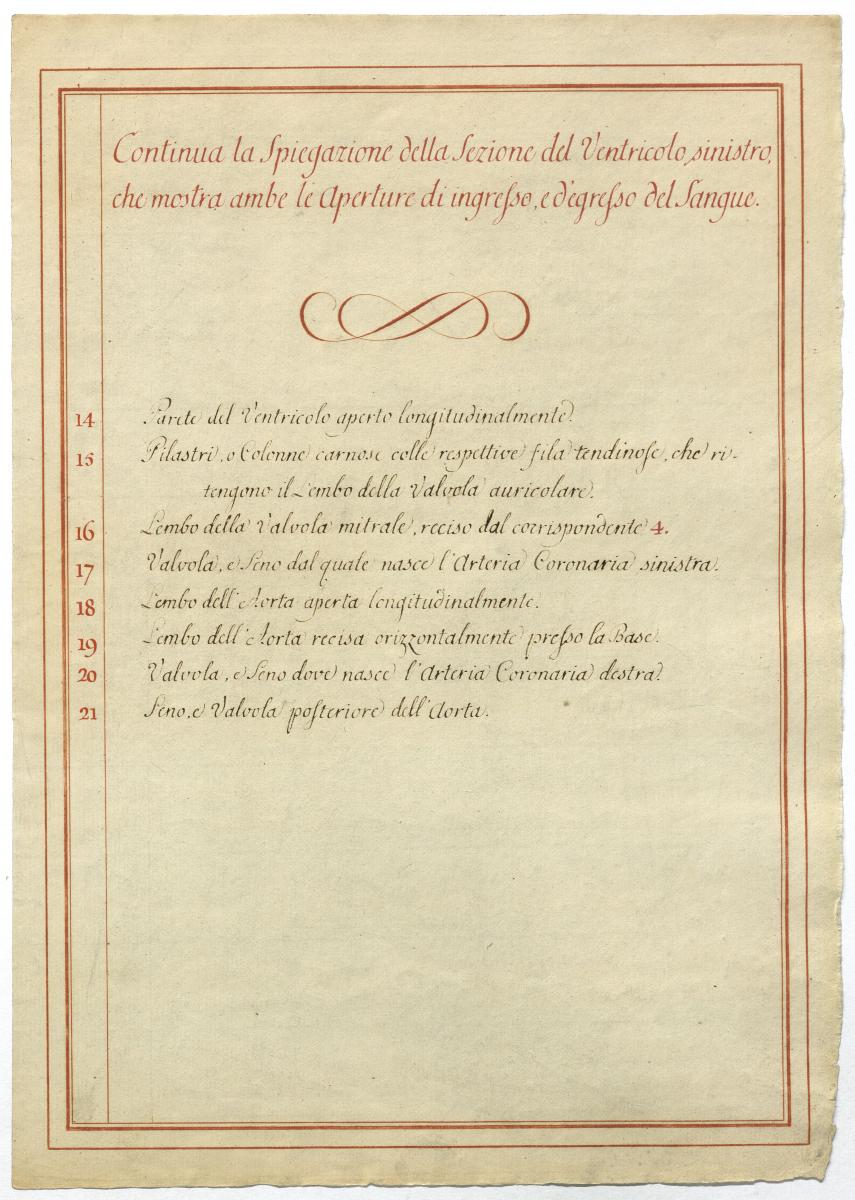 Continua la Spiegazione della Sezione del Ventricolo sinistro,
che mostra ambe le Aperture di ingresso, e d'egresso del Sangue.
14 Parete del Ventricolo aperto longitudinalmente.
15 Pilastri, o Colonne carnose colle respettive fila tendinose, che ri-
tengono il Lembo della Valvola auricolare.
16 Lembo della Valvola mitrale, reciso dal corrispondente 4.
17 Valvola, e Seno dal quale nasce l'Arteria Coronaria sinistra.
18 Lembo dell'Aorta aperta longitudinalmente.
19 Lembo dell'Aorta recisa orizzontalmente presso la Base.
20 Valvola, e Seno dove nasce l'Arteria Coronaria destra.
21 Seno, e Valvola posteriore dell'Aorta.